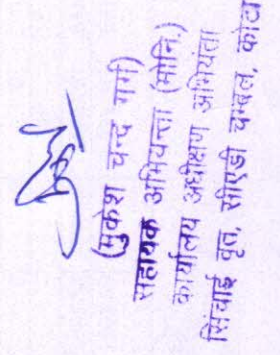 (मुकेश चन्द गर्ग)
सहायक अभियन्ता (मोनि.)
कार्यालय अधीक्षण अभियंता
सिंचाई वृत, सीएडी चम्बल, कोटा